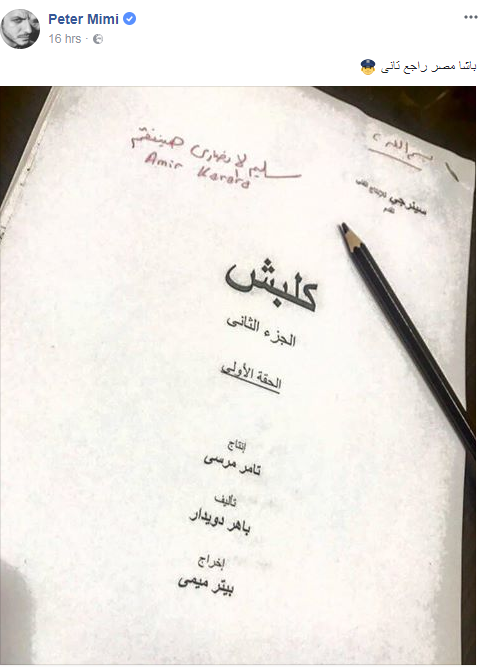 Peter Mimi
16 hrs ·
باشا مصر راجع تانى
بسم الله
سليم الانصارى هينتقم
Amir Karara
سينرجي
تقدم
كلبش
الجزء الثانى
الحقة الأولى
إنتاج
تامر مرسى
تأليف
باهر دويدار
إخراج
بيتر ميمى